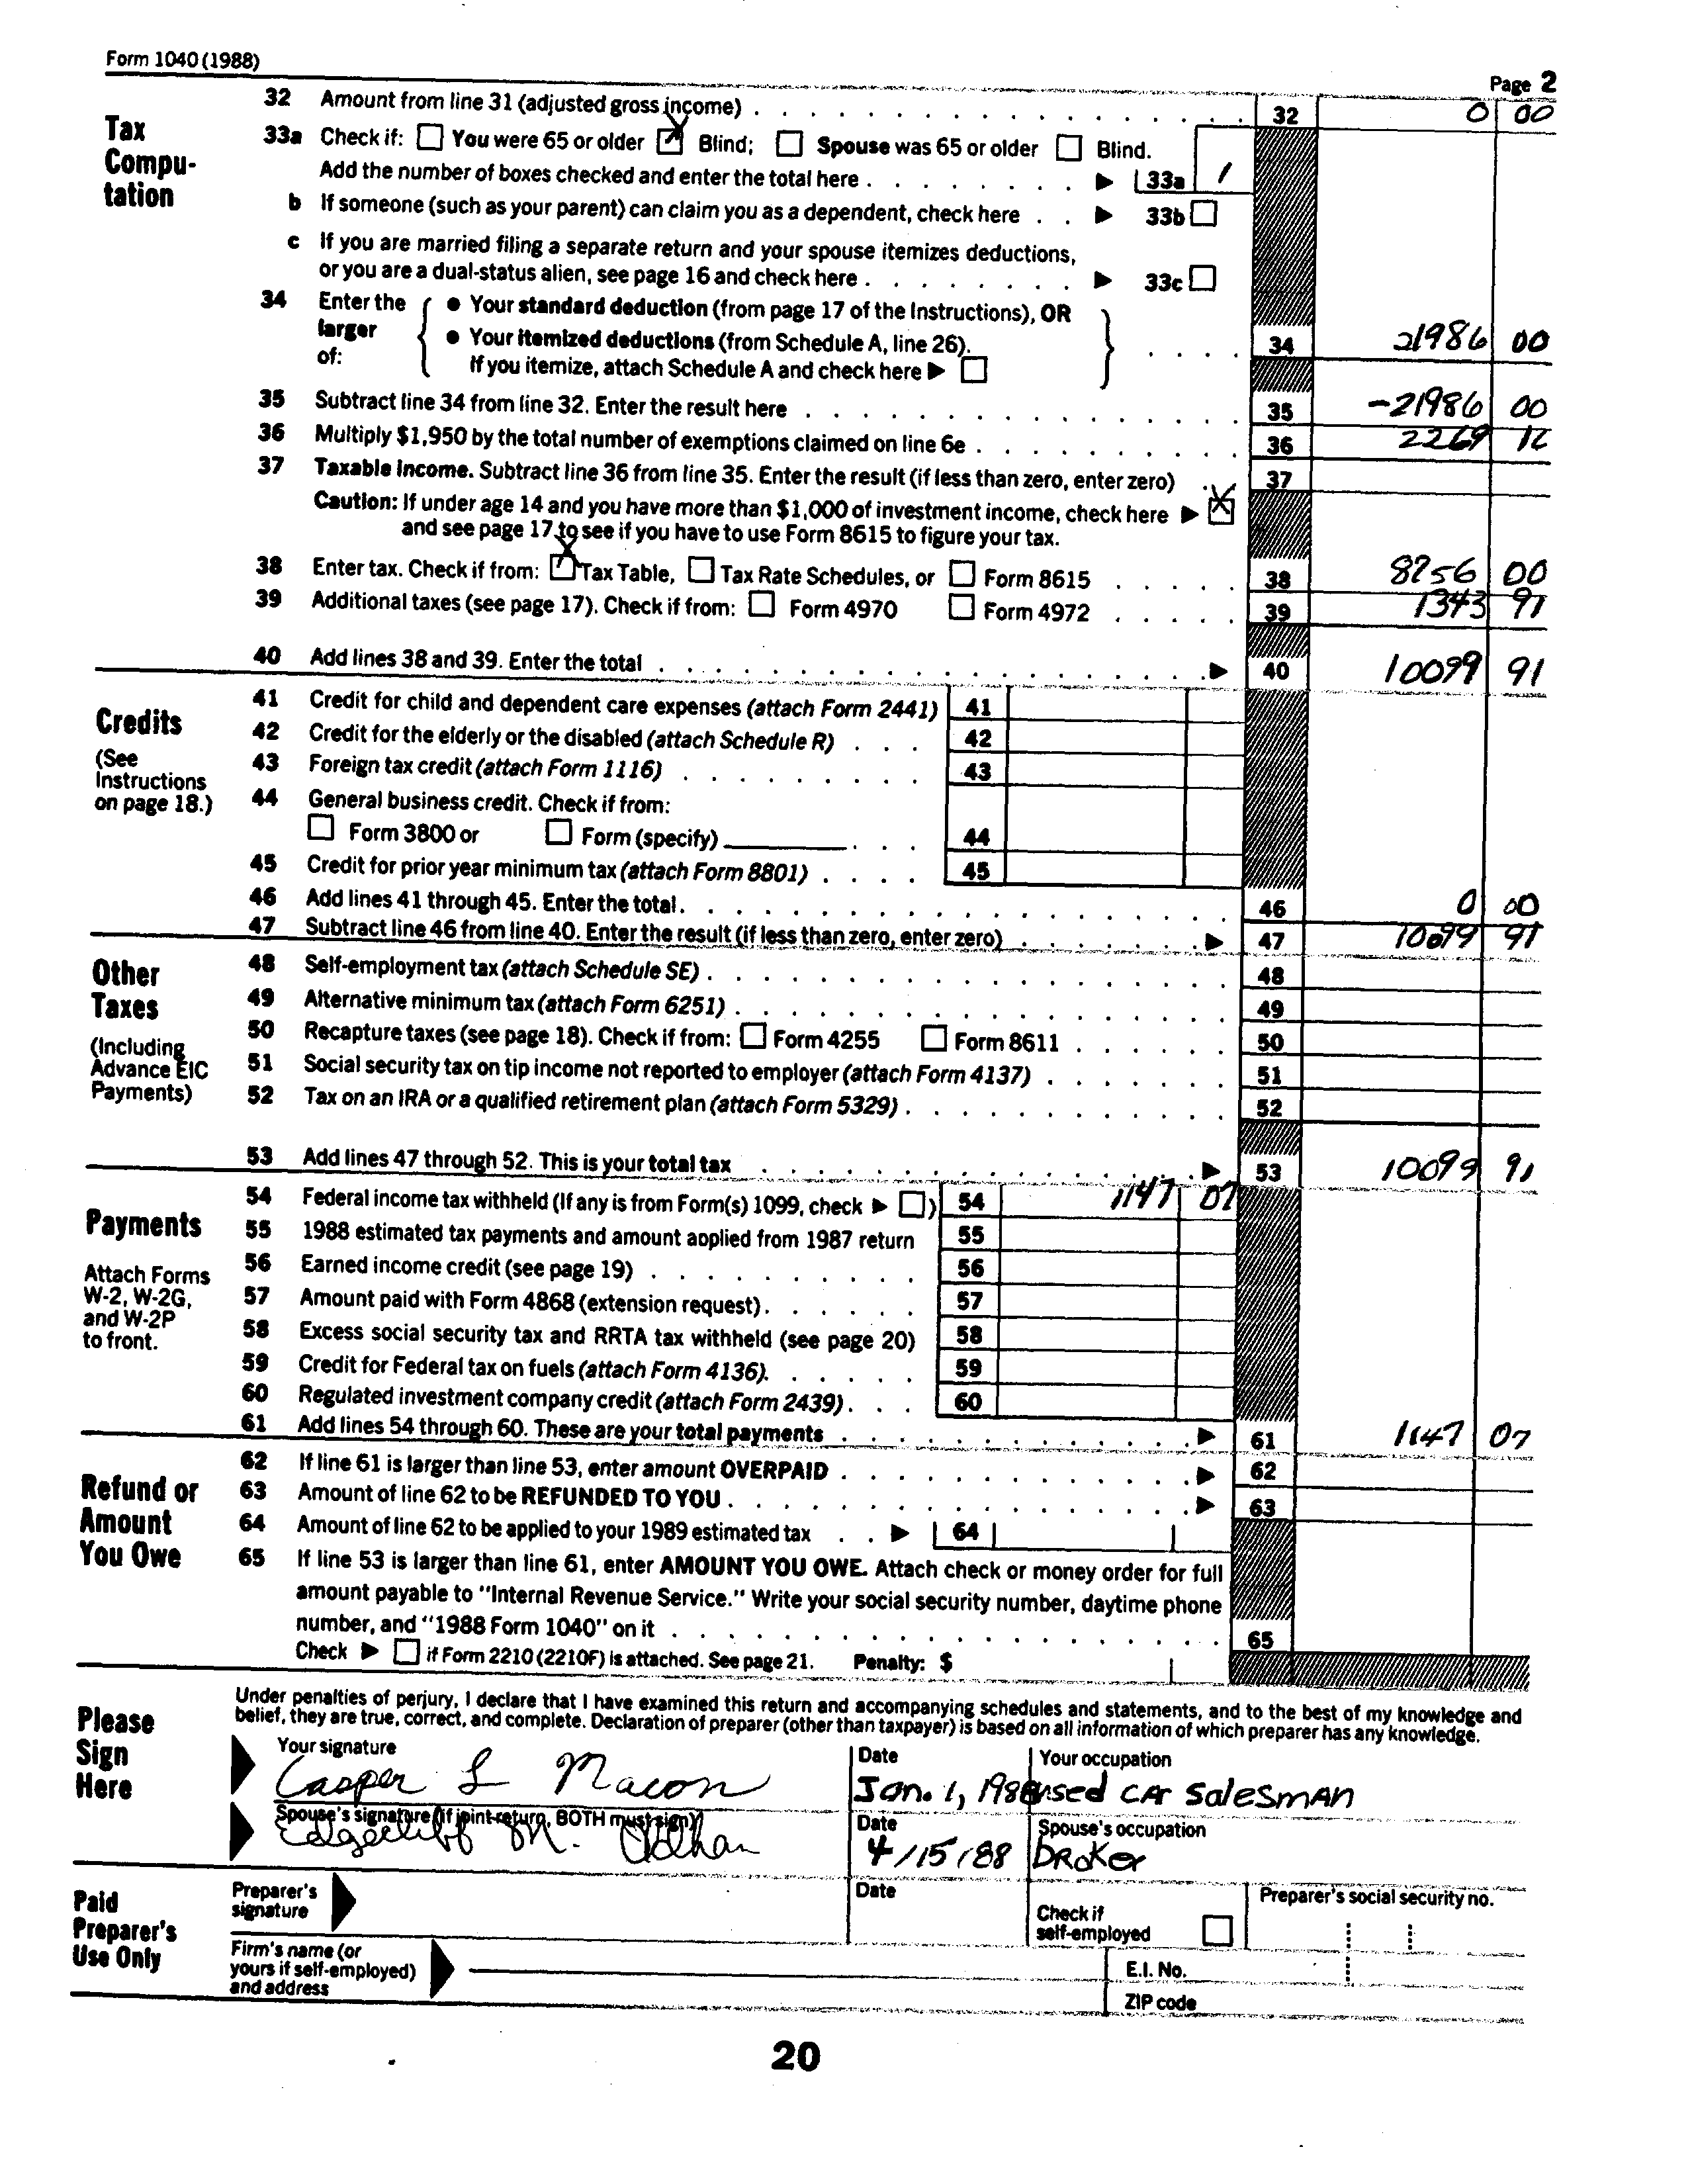 Form 1040 (1988)
Page 2
Tax Compu-tation
32 Amount from line 31 (adjusted gross income) . . . 32 0 00
33a Check if: You were 65 or older X Blind; Spouse was 65 or older Blind.
Add the number of boxes checked and enter the total here . . . ▶ 33a 1
b If someone (such as your parent) can claim you as a dependent, check here . . ▶ 33b
c If you are married filing a separate return and your spouse itemizes deductions,
or you are a dual-status alien, see page 16 and check here . . . ▶ 33c
34 Enter the larger of:
● Your standard deduction (from page 17 of the Instructions), OR
● Your itemized deductions (from Schedule A, line 26).
If you itemize, attach Schedule A and check here ▶
. . . . 34 21986 00
35 Subtract line 34 from line 32. Enter the result here . . . 35 -21986 00
36 Multiply $1,950 by the total number of exemptions claimed on line 6e . . . 36 2269
37 Taxable income. Subtract line 36 from line 35. Enter the result (if less than zero, enter zero) . . 37
Caution: If under age 14 and you have more than $1,000 of investment income, check here ▶ X
and see page 17 to see if you have to use Form 8615 to figure your tax.
38 Enter tax. Check if from: X Tax Table, Tax Rate Schedules, or Form 8615 . . . 38 8756 00
39 Additional taxes (see page 17). Check if from: Form 4970 Form 4972 . . . 39 1343 91
40 Add lines 38 and 39. Enter the total . . . ▶ 40 10099 91
Credits
(See Instructions on page 18.)
41 Credit for child and dependent care expenses (attach Form 2441) 41
42 Credit for the elderly or the disabled (attach Schedule R) . . . 42
43 Foreign tax credit (attach Form 1116) . . . 43
44 General business credit. Check if from:
Form 3800 or Form (specify) . . . 44
45 Credit for prior year minimum tax (attach Form 8801) . . . . 45
46 Add lines 41 through 45. Enter the total. . . . 46 0 00
47 Subtract line 46 from line 40. Enter the result (if less than zero, enter zero) . . . ▶ 47 10099 91
Other Taxes
(Including Advance EIC Payments)
48 Self-employment tax (attach Schedule SE) . . . 48
49 Alternative minimum tax (attach Form 6251) . . . 49
50 Recapture taxes (see page 18). Check if from: Form 4255 Form 8611 . . . 50
51 Social security tax on tip income not reported to employer (attach Form 4137) . . . 51
52 Tax on an IRA or a qualified retirement plan (attach Form 5329) . . . 52
53 Add lines 47 through 52. This is your total tax . . . ▶ 53 10099 91
Payments
Attach Forms W-2, W-2G, and W-2P to front.
54 Federal income tax withheld (If any is from Form(s) 1099, check ▶ ) 54 1147 07
55 1988 estimated tax payments and amount applied from 1987 return 55
56 Earned income credit (see page 19) . . . 56
57 Amount paid with Form 4868 (extension request) . . . 57
58 Excess social security tax and RRTA tax withheld (see page 20) 58
59 Credit for Federal tax on fuels (attach Form 4136). . . . 59
60 Regulated investment company credit (attach Form 2439) . . . 60
61 Add lines 54 through 60. These are your total payments . . . ▶ 61 1147 07
Refund or Amount You Owe
62 If line 61 is larger than line 53, enter amount OVERPAID . . . ▶ 62
63 Amount of line 62 to be REFUNDED TO YOU . . . ▶ 63
64 Amount of line 62 to be applied to your 1989 estimated tax . . ▶ 64
65 If line 53 is larger than line 61, enter AMOUNT YOU OWE. Attach check or money order for full
amount payable to "Internal Revenue Service." Write your social security number, daytime phone
number, and "1988 Form 1040" on it . . . 65
Check ▶ if Form 2210 (2210F) is attached. See page 21. Penalty: $
Please Sign Here
Under penalties of perjury, I declare that I have examined this return and accompanying schedules and statements, and to the best of my knowledge and
belief, they are true, correct, and complete. Declaration of preparer (other than taxpayer) is based on all information of which preparer has any knowledge.
Your signature Date Your occupation
Casper L Macon Jan. 1, 1988 used car salesman
Spouse's signature (if joint return, BOTH must sign) Date Spouse's occupation
Edgecliff M. 4/15/88 broker
Paid Preparer's Use Only
Preparer's signature Date Check if self-employed Preparer's social security no.
Firm's name (or yours if self-employed) and address
E.I. No.
ZIP code
20